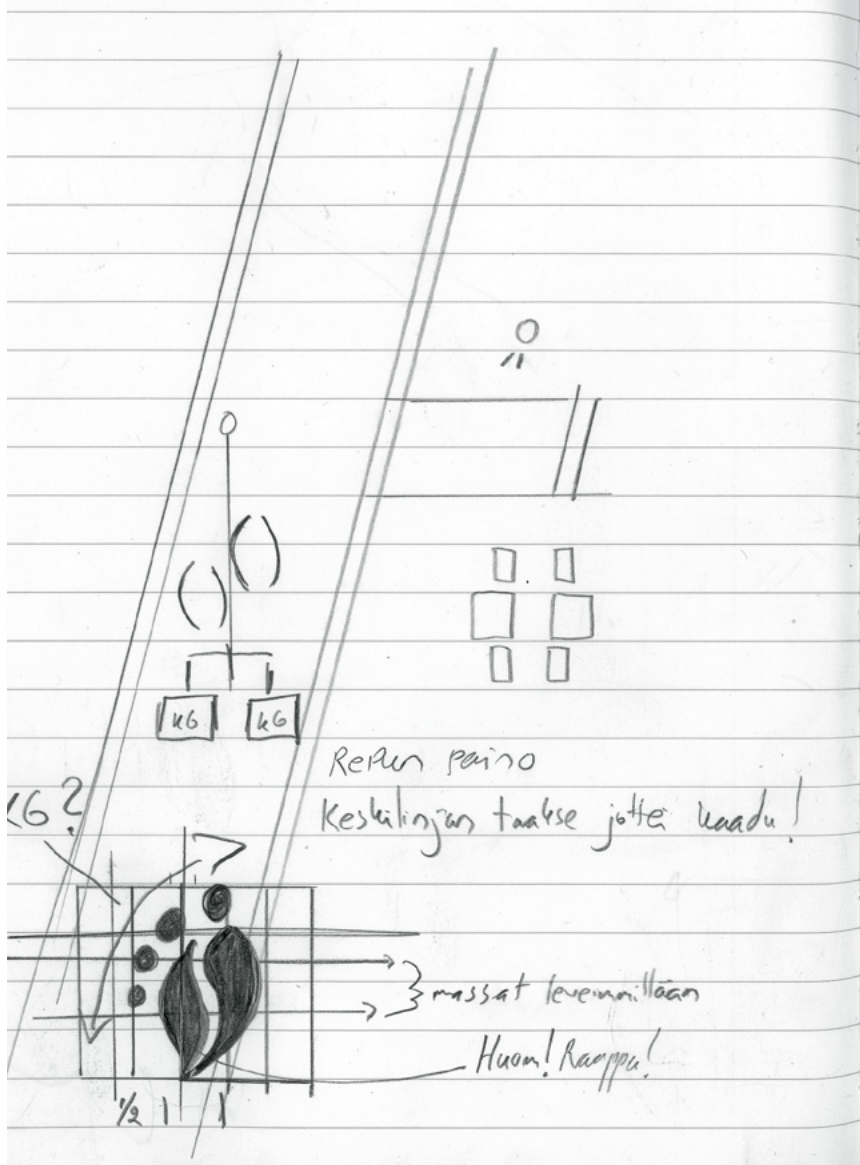 KG KG
Repun paino
Keskilinjan taakse jottei kaadu!
KG?
massat leveimmillään
Huom! Rappu!
1/2 1 1